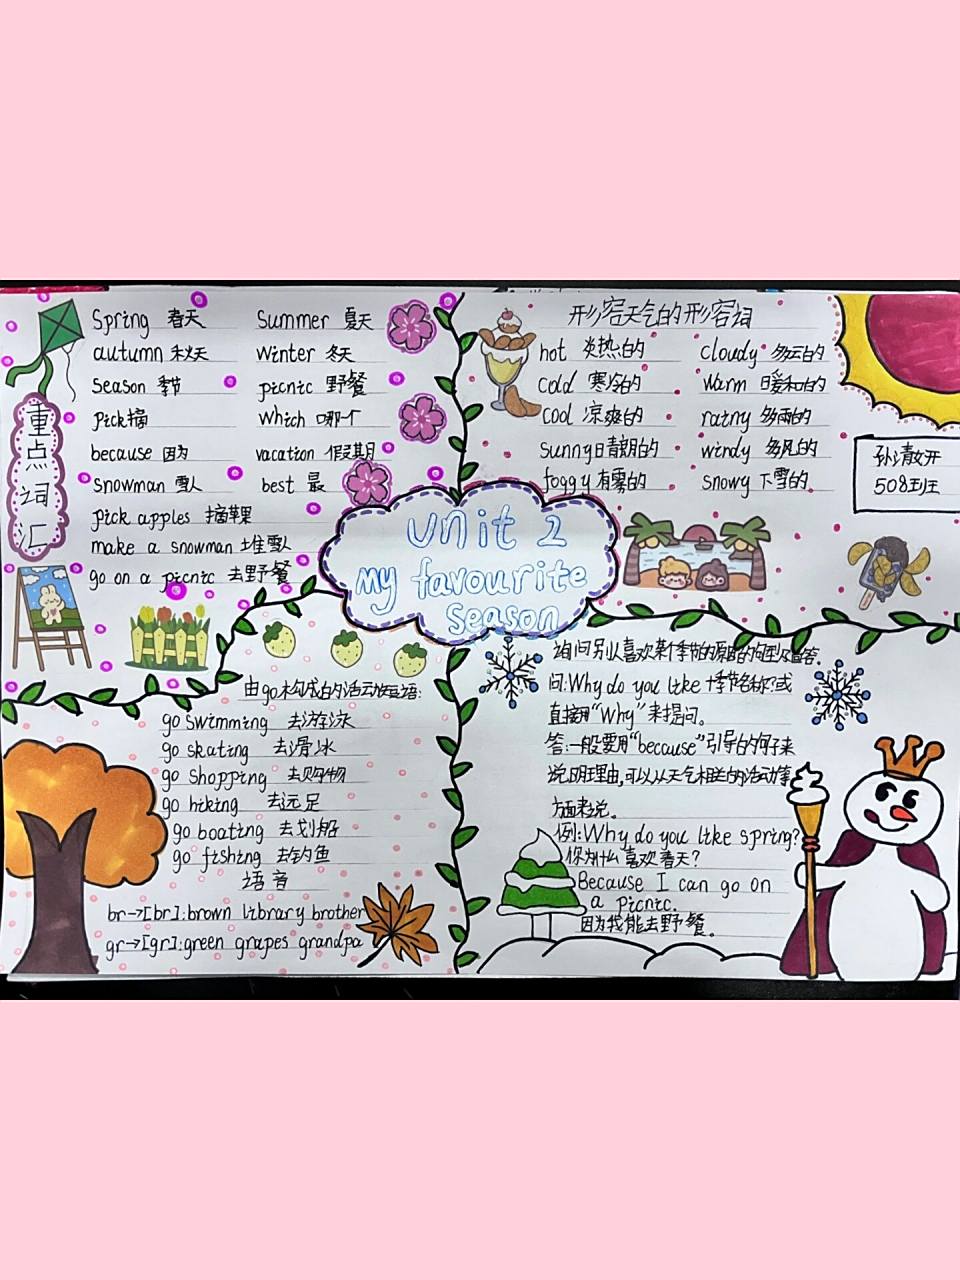 Spring 春天
Summer 夏天
autumn 秋天
Winter 冬天
Season 季节
picnic 野餐
pick摘
Which 哪个
because 因为
vacation 假期
snowman 雪人
best 最
pick apples 摘苹果
make a snowman 堆雪人
go on a picnic 去野餐
重点词汇
形容天气的形容词
hot 炎热的
cloudy 多云的
cold 寒冷的
Warm 暖和的
cool 凉爽的
rainy 多雨的
Sunny 晴朗的
windy 多风的
foggy 有雾的
snowy 下雪的
508班
Unit 2
my favourite
season
由go构成的活动性短语:
go swimming 去游泳
go skating 去滑冰
go shopping 去购物
go hiking 去远足
go boating 去划船
go fishing 去钓鱼
语音
br→[br]:brown library brother
gr→[gr]:green grapes grandpa
询问别人喜欢某个季节的原因的句型及回答。
问:Why do you like +季节名称?或
直接用“Why”来提问。
答:一般要用“because”引导的句子来
说明理由,可以从天气相关的活动等
方面来说。
例:Why do you like spring?
你为什么喜欢春天?
Because I can go on
a picnic.
因为我能去野餐。